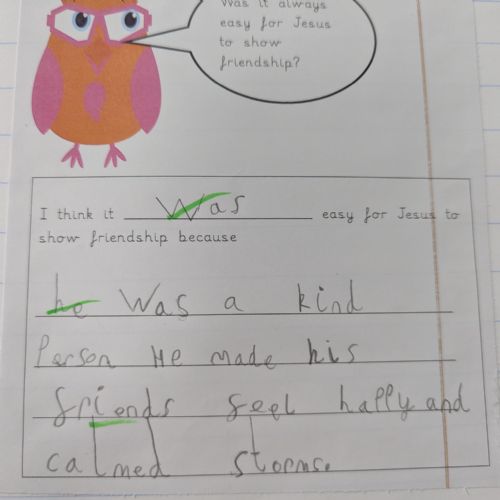 Was it always
easy for Jesus
to show
friendship?
I think it Was easy for Jesus to
show friendship because
he Was a kind
Person He made his
friends feel happy and
calmed storms.